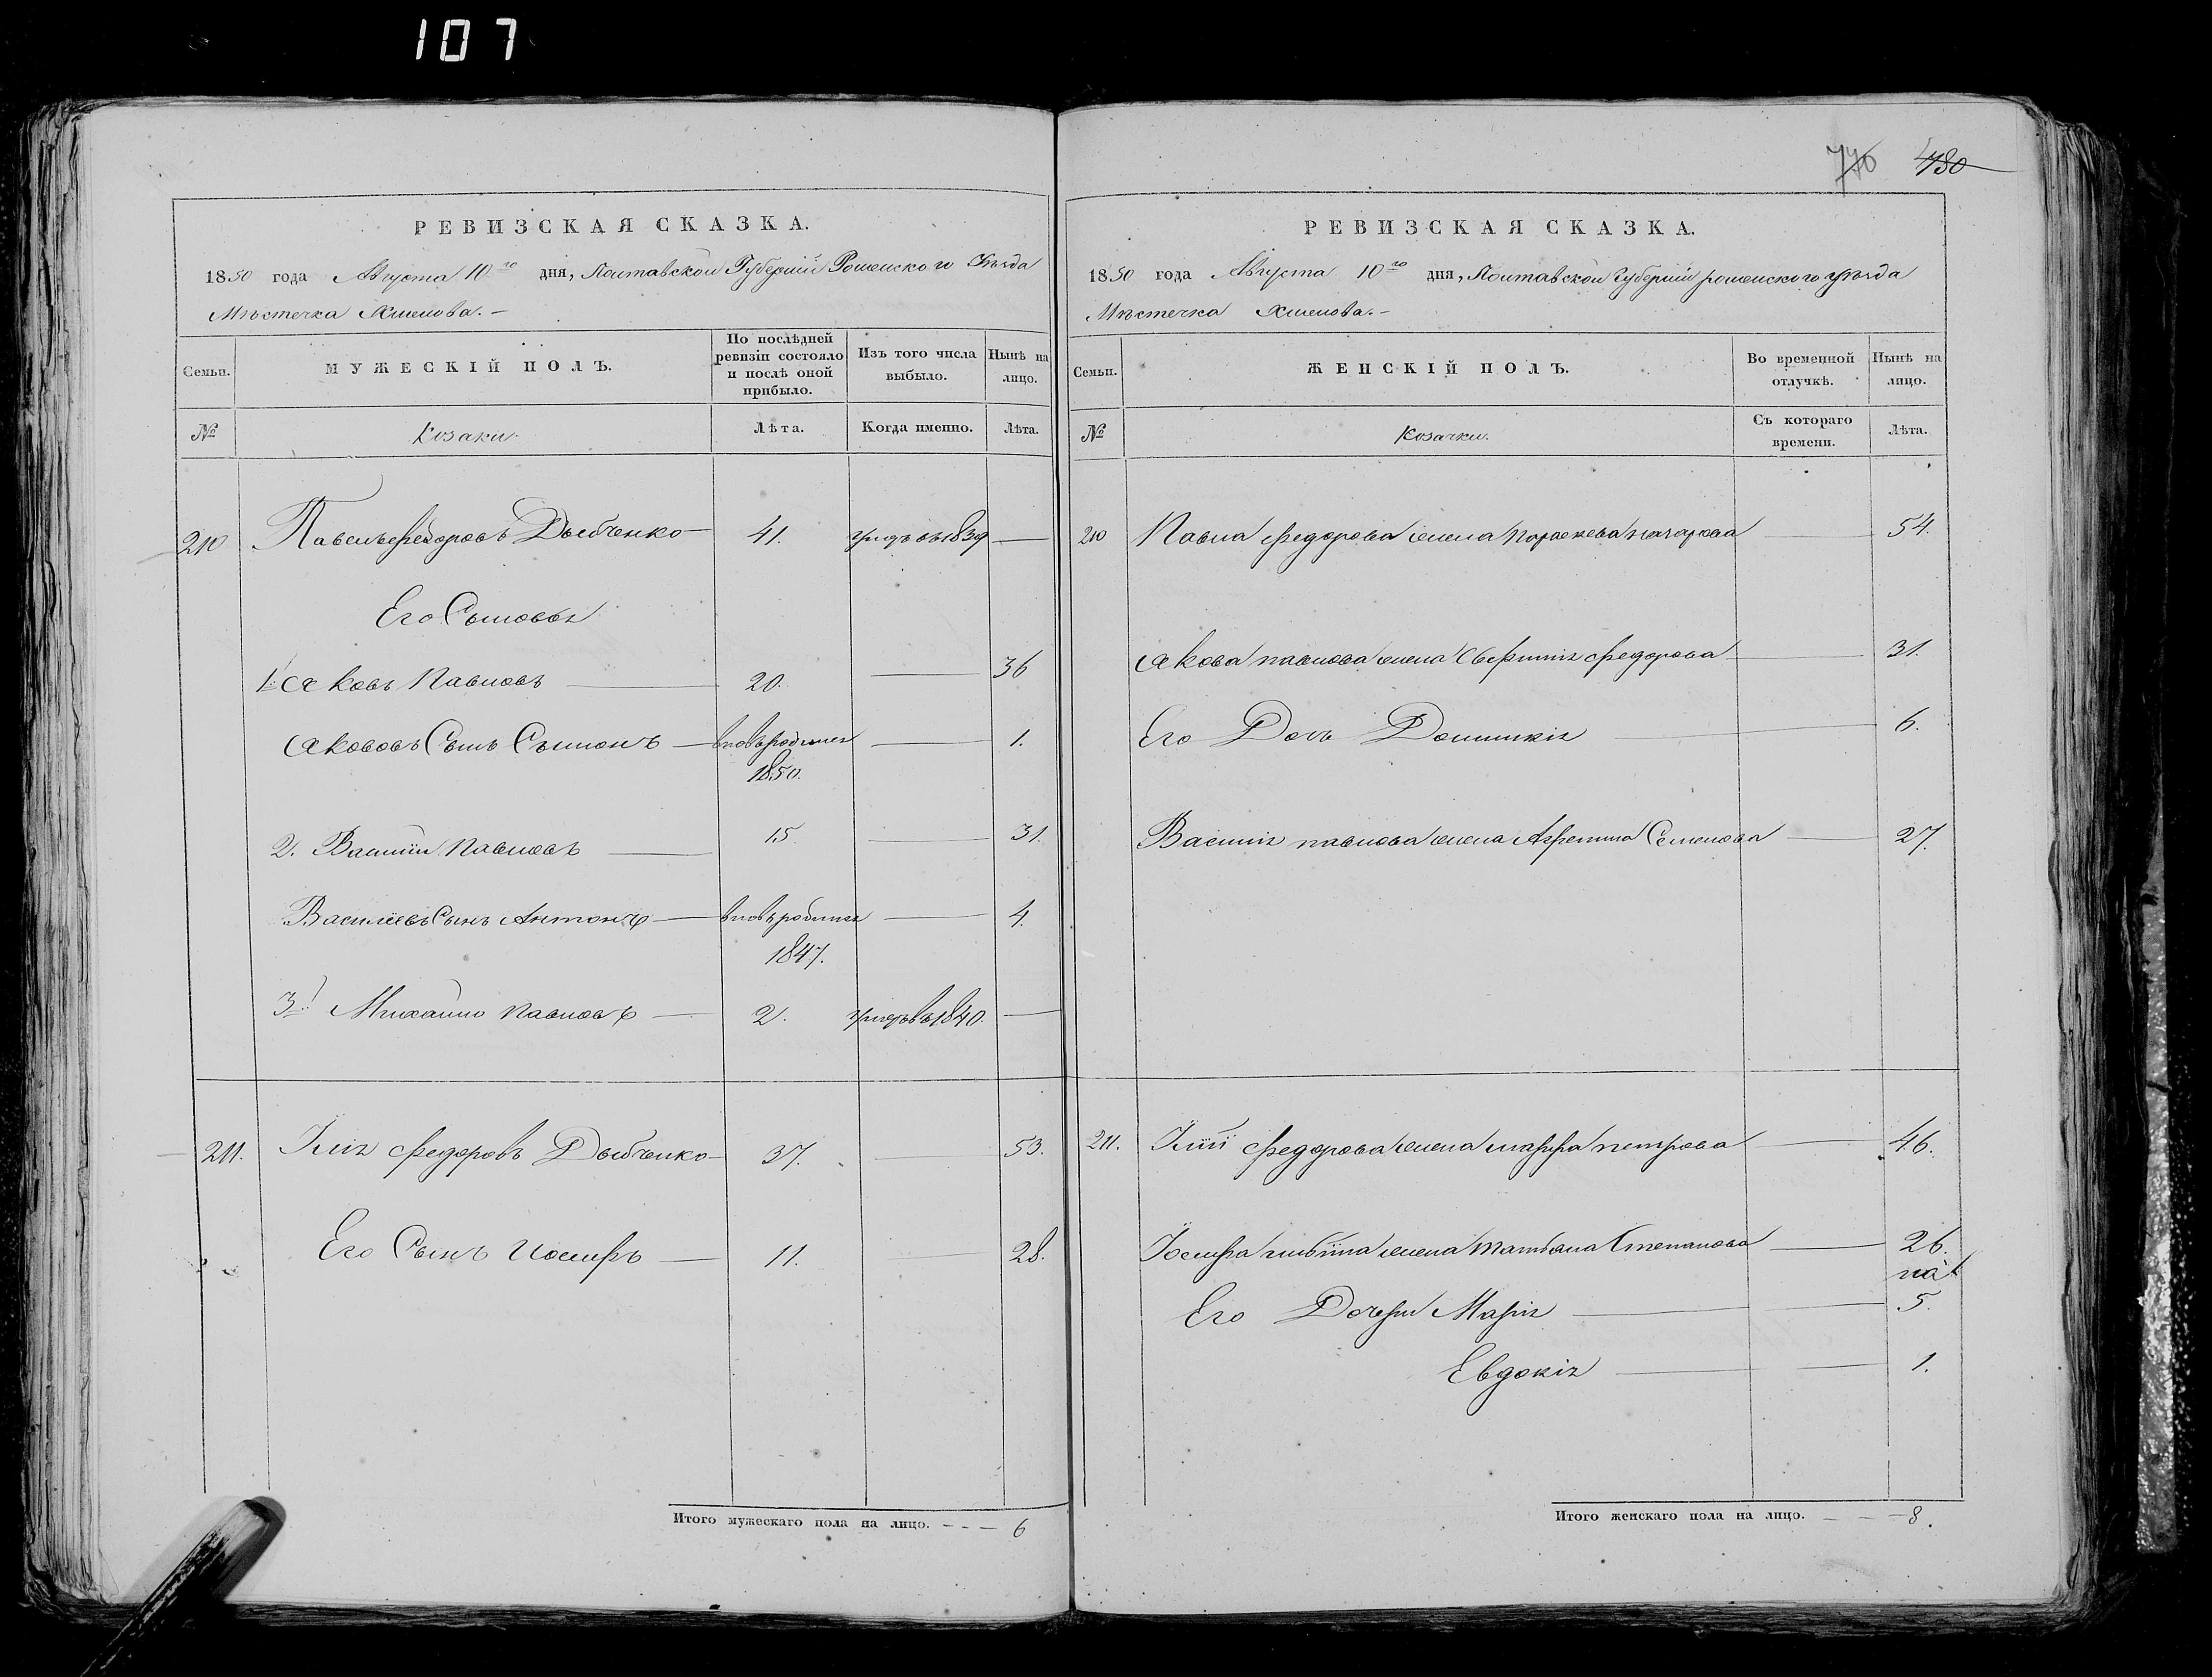 107
770 480
РЕВИЗСКАЯ СКАЗКА.
1850 года Августа 10го дня, Полтавской Губернии Роменского Уезда
Местечка Хмелова.
Семьи. МУЖЕСКІЙ ПОЛЪ. По послѣдней ревизіи состояло и послѣ оной прибыло. Изъ того числа выбыло. Нынѣ на лицо.
№ Козаки. Лѣта. Когда именно. Лѣта.
210 Павелъ Федоровъ Дыбченко 41. умеръ въ 1839
Его Сыновья
1. Яковъ Павловъ 20. 36
Якововъ Сынъ Сымонъ вновь родился 1. 
1850.
2. Василий Павловъ 15 31.
Василиевъ Сынъ Антонъ вновь родился 4.
1847.
3. Михайло Павловъ 2. умеръ въ 1840.
211. Илия Федоровъ Дыбченко 37. 53.
Его Сынъ Иосифъ 11. 28.
Итого мужескаго пола на лицо. 6
РЕВИЗСКАЯ СКАЗКА.
1850 года Августа 10го дня, Полтавской Губернии Роменского уезда
Местечка Хмелова.
Семьи. ЖЕНСКІЙ ПОЛЪ. Во временной отлучкѣ. Нынѣ на лицо.
№ Козачки. Съ котораго времени. Лѣта.
210 Павла Федорова жена Параскева 54.
Якова Павлова жена Федорова 31.
Его Дочь Домникія 6.
Василия Павлова жена Агрепина Семенова 27.
211. Иліи Федорова жена Марфа Петрова 46.
Іосифа Ильина жена Татьяна Степанова 26.
Его Дочери Марія 5.
Евдокія 1.
Итого женскаго пола на лицо. 8.